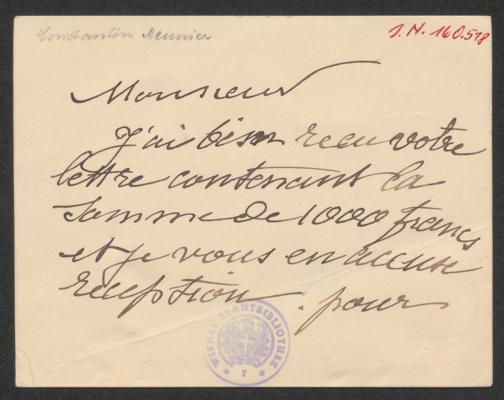 Constantin Meunier
I.N. 160.518
Monsieur
j'ai bien recu votre
lettre contenant la
somme de 1000 francs
et je vous en accuse
reception. pour
WIENER STADTBIBLIOTHEK
1